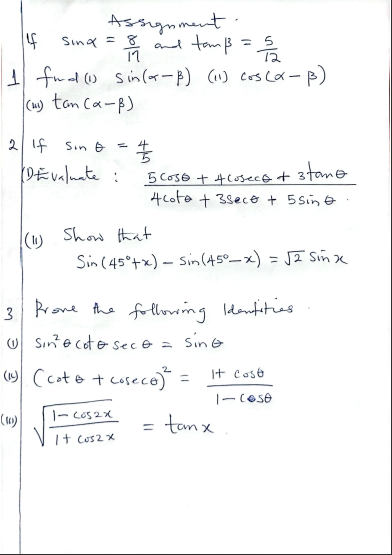 Assignment.
If sinα = 8/17 and tanβ = 5/12
1 find (i) sin(α-β) (ii) cos(α-β)
(iii) tan(α-β)
2 If sin θ = 4/5
(i) Evaluate : (5cosθ + 4cosecθ + 3tanθ)/(4cotθ + 3secθ + 5sinθ).
(ii) Show that
Sin(45°+x) - Sin(45°-x) = √2 sin x
3 Prove the following Identities.
(i) Sin²θ cotθ secθ = sinθ
(ii) (cotθ + cosecθ)² = (1+ cosθ)/(1-cosθ)
(iii) √((1-cos2x)/(1+cos2x)) = tanx.